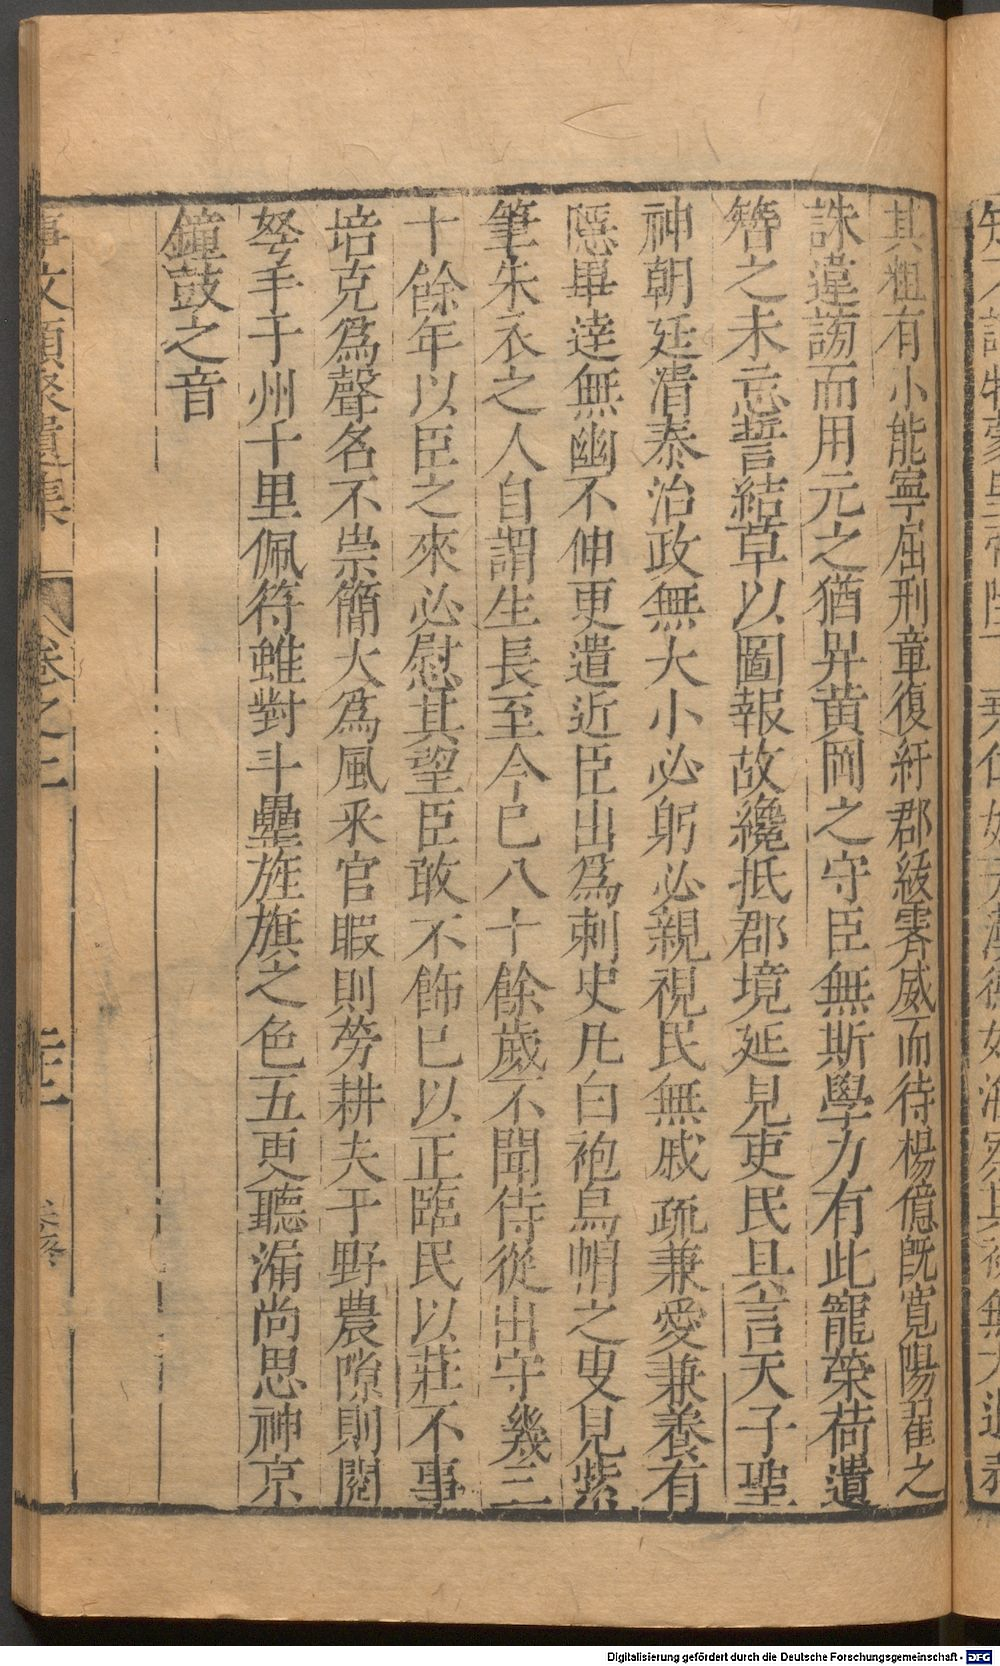 其粗有小能寧屈刑章復紆郡紱霽威而待楊億旣寬陽翟之
誅違謗而用元之猶昇黄岡之守臣無斯學力有此寵榮荷遺
簪之未忘誓結草以圖報故纔抵郡境延見吏民具言天子聖
神朝廷清泰治政無大小必躬必親視民無戚疏兼愛兼養有
隱畢達無幽不伸更遣近臣出爲刺史凡白袍烏帽之叟見紫
筆朱衣之人自謂生長至今已八十餘歲不聞侍從出守幾三
十餘年以臣之來必慰其望臣敢不飾己以正臨民以莊不事
掊克爲聲名不崇簡大爲風采官暇則勞耕夫于野農隙則閱
弩手于州千里佩符雖對斗壘旌旗之色五更聽漏尚思神京
鐘鼓之音
事文類聚遺集 卷之二 二十二
Digitalisierung gefördert durch die Deutsche Forschungsgemeinschaft - DFG